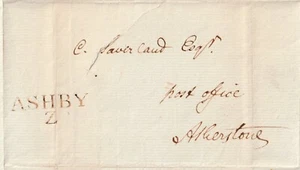 C. Favercaud Esqr.
Post office
ASHBY
2
Atherstone